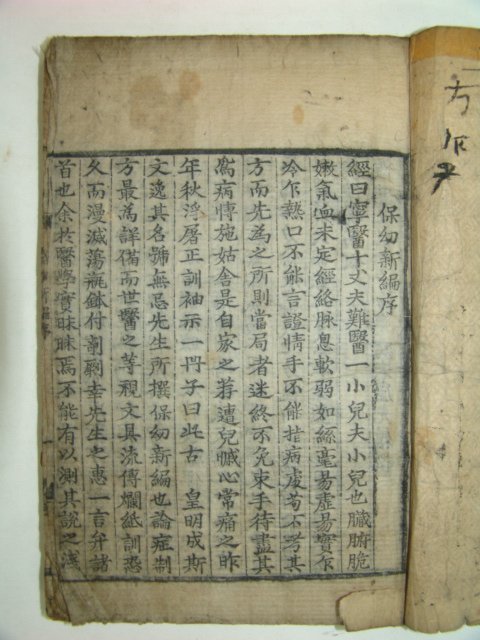 保幼新編序
經曰寧醫十丈夫難醫一小兒夫小兒也臟腑脆
嫩氣血未定經絡脉息軟弱如絲毫易虛易實乍
冷乍熱口不能言證情手不能指病處苟不考其
方而先為之所則當局者迷終不免束手待盡其
為病愽施姑舍是自家之荐遭兒慽心常痛之昨
年秋浮屠正訓袖示一冊子曰此古 皇明成斯
文逸其名號無忌先生所撰保幼新編也論症制
方最為詳備而世醫之等視文具流傳爛紙訓恐
久而漫滅蕩瓶鉢付剞劂幸先生之惠一言弁諸
首也余於醫學實昧昧焉不能有以測其說之淺